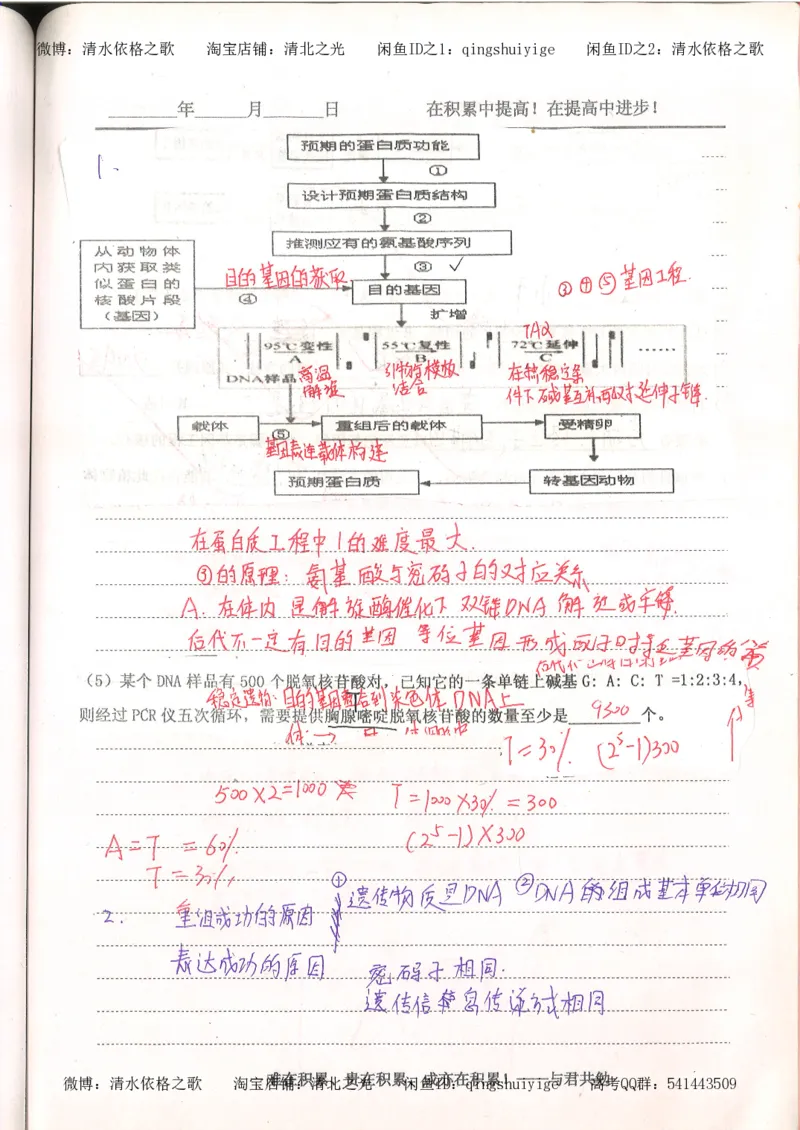 微博：清水依格之歌 淘宝店铺：清北之光 闲鱼ID之1：qingshuiyige 闲鱼ID之2：清水依格之歌
年 月 日 在积累中提高！在提高中进步！
1.
预期的蛋白质功能
①
设计预期蛋白质结构
②
推测应有的氨基酸序列
③ ✓
从动物体内获取类似蛋白的核酸片段（基因）
目的基因的获取
④
目的基因
③④⑤基因工程.
扩增
TAQ
95℃变性 55℃复性 72℃延伸 ……
A B C
DNA样品 高温解旋
引物与模板结合
在特稳定条件下碱基互补而双子延伸子链.
载体 重组后的载体 受精卵
⑤
基因表达载体构建
预期蛋白质 转基因动物
在蛋白质工程中1的难度最大.
③的原理：氨基酸与密码子的对应关系
A. 在体内是解旋酶催化下双链DNA解旋成单链.
后代不一定有目的基因 等位基因形成配子时
（5）某个DNA样品有500个脱氧核苷酸对，已知它的一条单链上碱基G：A：C：T=1:2:3:4，
稳定遗传：目的基因整合到染色体DNA上
则经过PCR仪五次循环，需要提供胸腺嘧啶脱氧核苷酸的数量至少是 9300 个。
T=30% (2⁵-1)300
500×2=1000 T=1000×30%=300
A=T=60% (2⁵-1)×300
T=30%
2. 重组成功的原因 ①遗传物质是DNA ②DNA的组成基本单位相同
表达成功的原因 密码子相同.
遗传信息传递方式相同
难在积累，贵在积累，成亦在积累！——与君共勉
微博：清水依格之歌 淘宝店铺：清北之光 闲鱼ID：qingshuiyige 高考QQ群：541443509